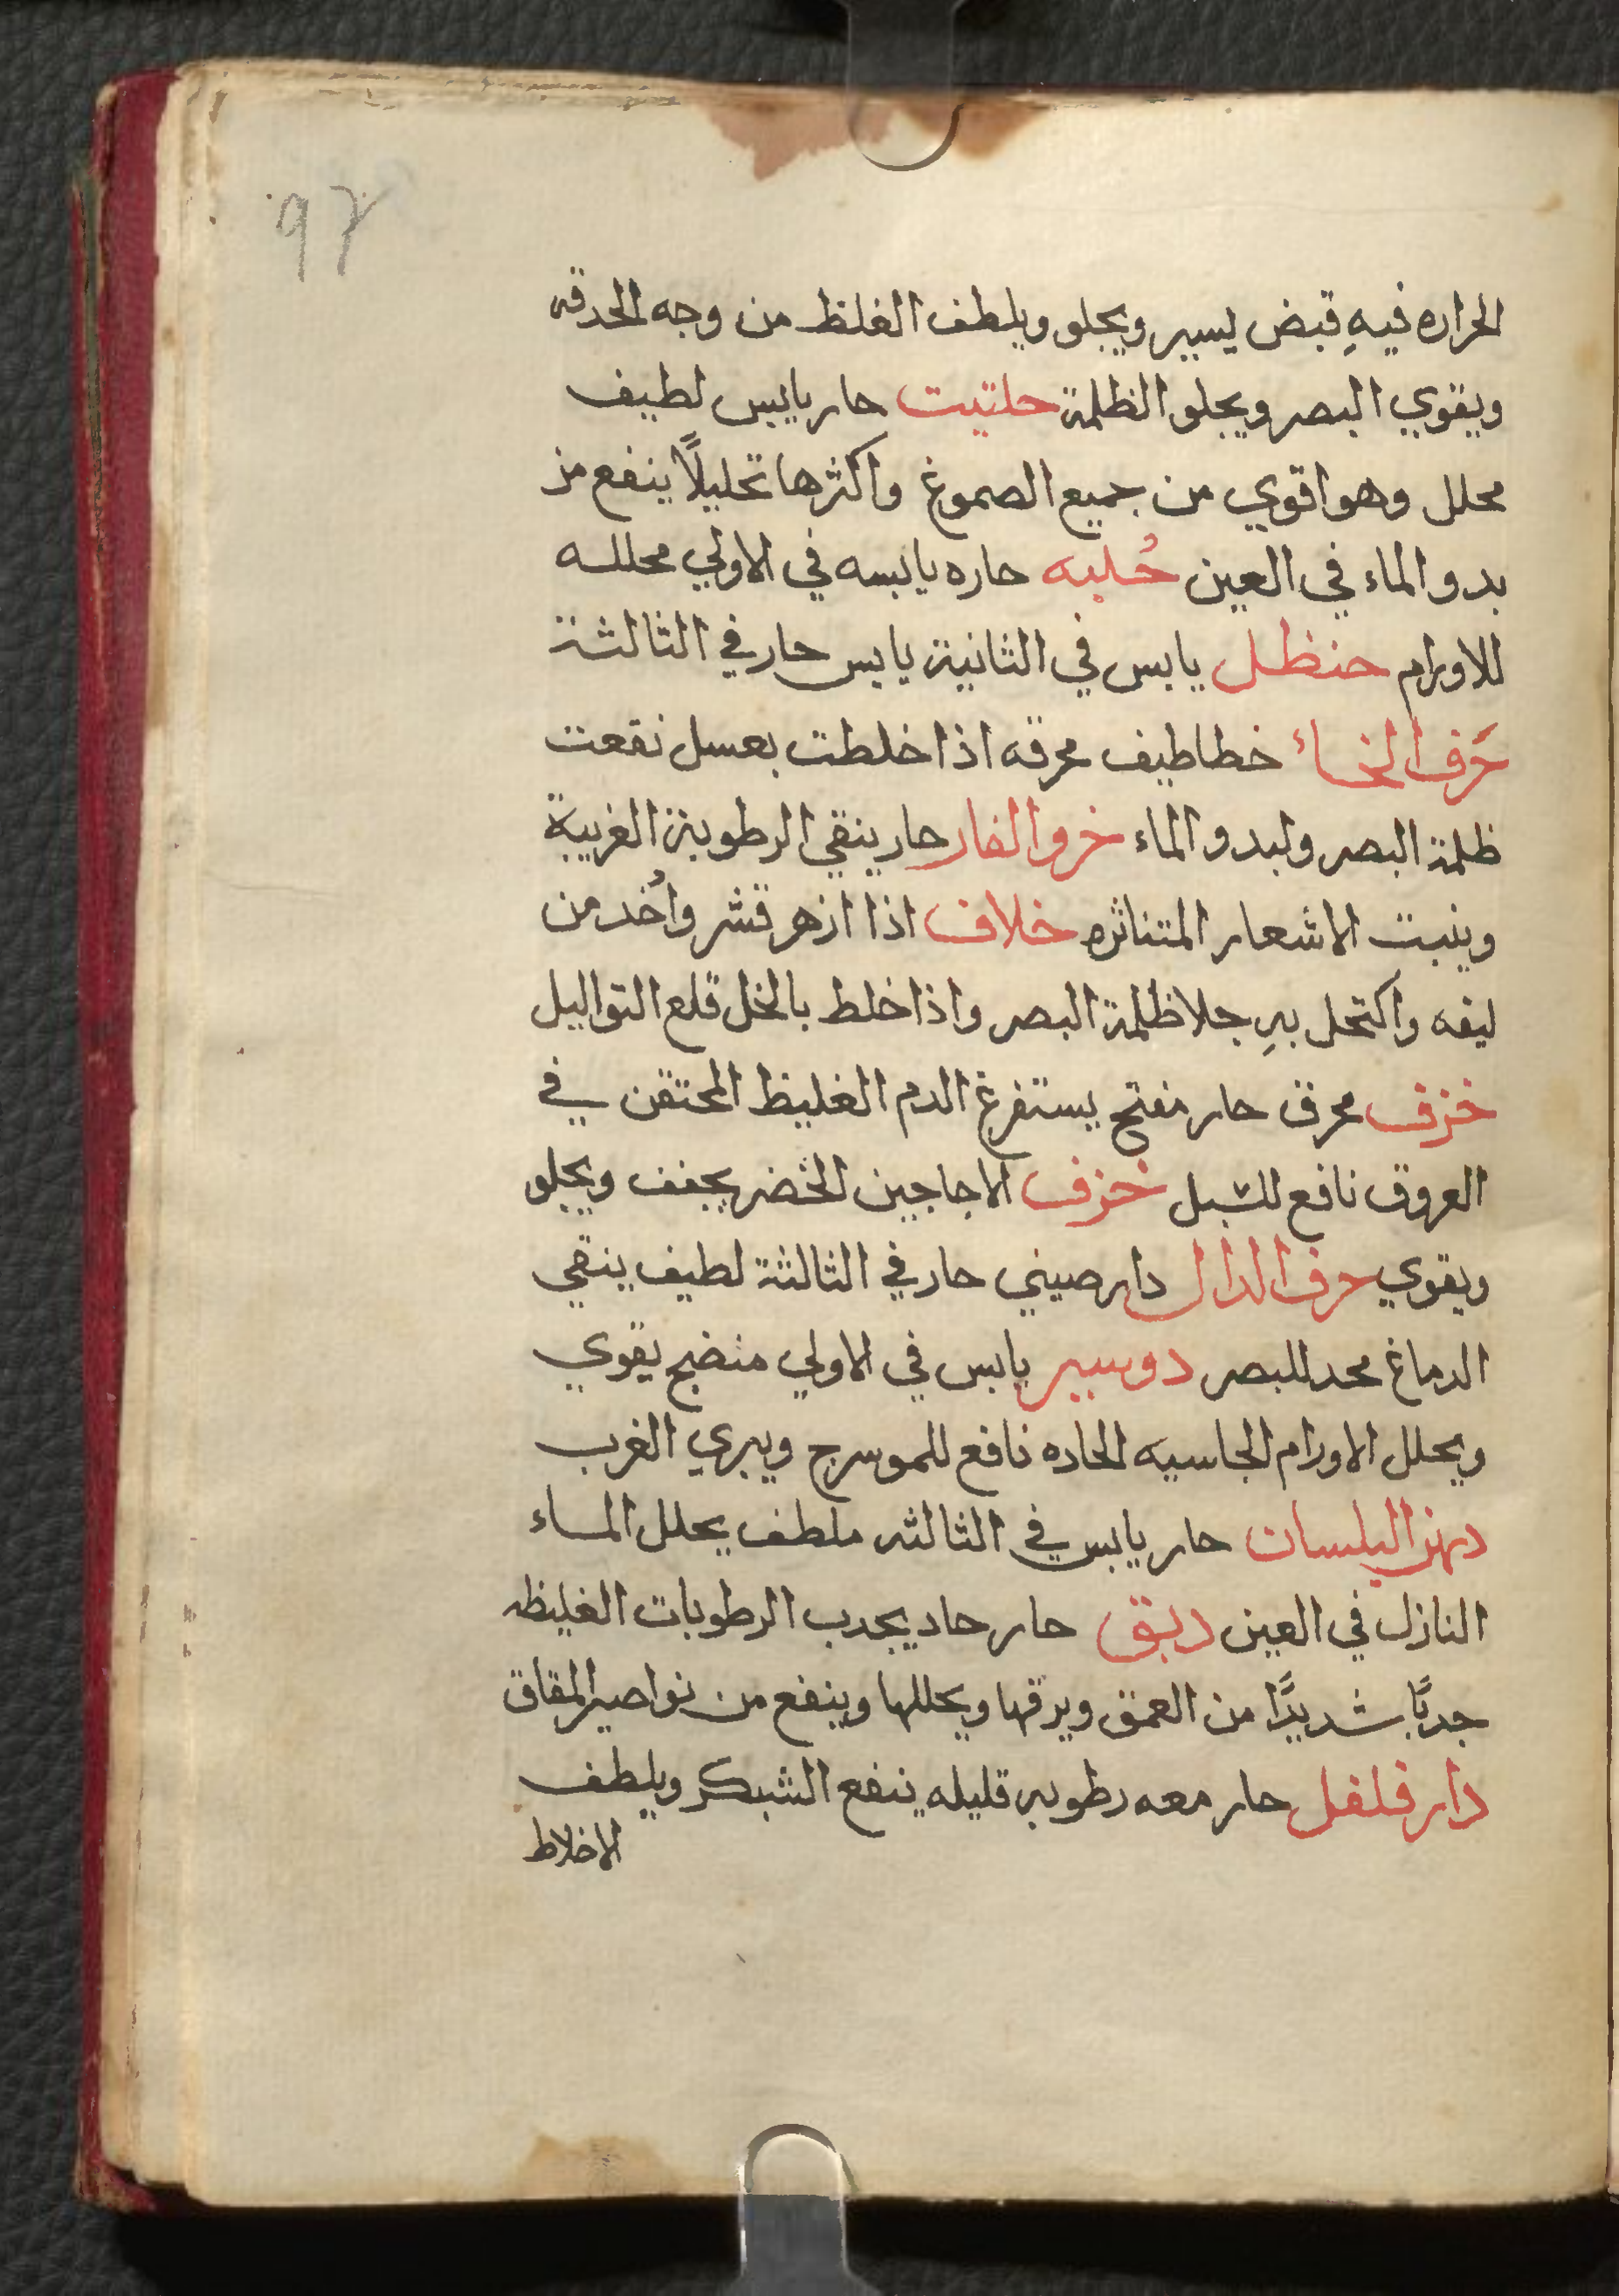 97
الحراره فيهِ قبض يسير ويجلو ويلطف الغلظ من وجه الحدقه
ويقوي البصر ويجلو الظلمة حلتيت حار يابس لطيف
محلل وهو اقوي من جميع الصموغ واكثرها تحليلًا ينفع من
بدو الماء في العين حُلبه حاره يابسه في الاولي محللـه
للاورام حنظل يابس في الثانية يابس حار في الثالثة
حَرف الخاء خطاطيف محرقه اذا خلطت بعسل نقعت
ظلمة البصر ولبدو الماء خرو الفار حار ينقي الرطوبة الغريبة
وينبت الاشعار المتناثره خلاف اذا ازهر قشر واُخد من
ليفه واكتحل بهِ جلا ظلمة البصر واذا خلط بالخل قلع التواليل
خزف محرق حار مفتح يستفرغ الدم الغليظ المحتقن في
العروق نافع للسبل خزف الاجاجين الخضر يجفف ويجلو
ويقوي حرف الدال دارصيني حار في الثالثة لطيف ينقي
الدماغ محد للبصر دوسير يابس في الاولي منضج يقوي
ويحلل الاورام الجاسيه الحاده نافع للموسرج ويبري الغرب
دهن البلسان حار يابس في الثالثه ملطف يحلل الماء
النازل في العين دبق حار حاد يجدب الرطوبات الغليظه
جدبًا شديدًا من العمق ويرقها ويحللها وينفع من نواصير المقاق
دار فلفل حار معه رطوبه قليله ينفع الشبكر ويلطف
الاخلاط